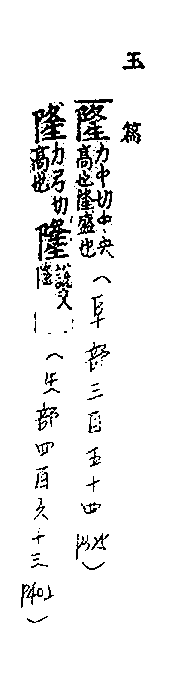 玉篇
隆力中切中央高也隆盛也(阜部三百五十四
隆力弓切高也隆說文隆(生部四百六十三